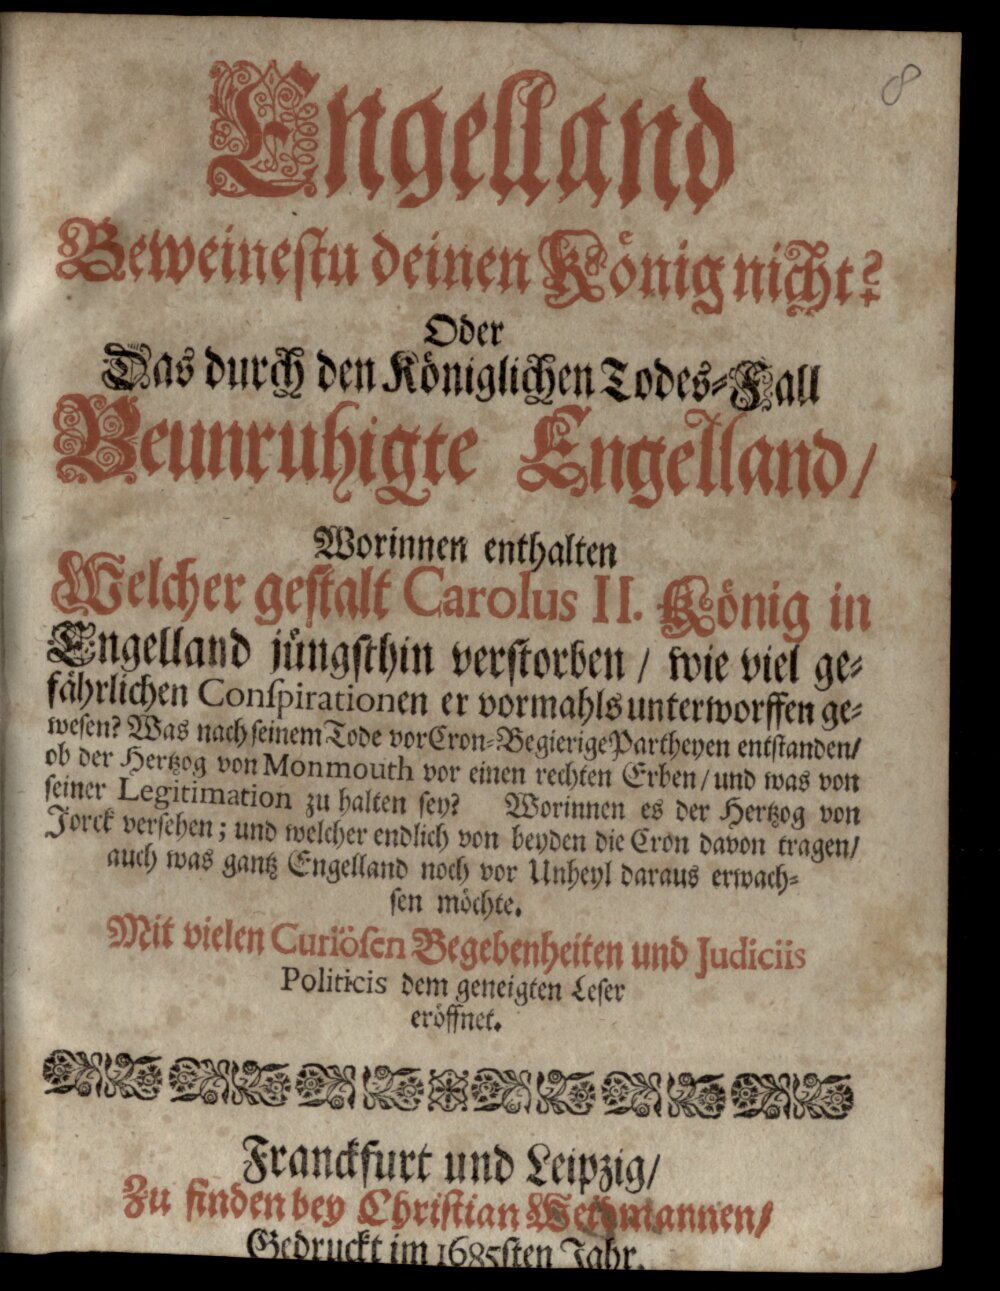 8
Engelland
Beweinestu deinen König nicht?
Oder
Das durch den Königlichen Todes-Fall
Beunruhigte Engelland/
Worinnen enthalten
Welcher gestalt Carolus II. König in
Engelland jüngsthin verstorben / wie viel ge-
fährlichen Conspirationen er vormahls unterworffen ge-
wesen? Was nach seinem Tode vor Cron-Begierige Partheyen entstanden/
ob der Hertzog von Monmouth vor einen rechten Erben/ und was von
seiner Legitimation zu halten sey? Worinnen es der Hertzog von
Jorck versehen; und welcher endlich von beyden die Cron davon tragen/
auch was gantz Engelland noch vor Unheyl daraus erwach-
sen möchte.
Mit vielen Curiösen Begebenheiten und Judiciis
Politicis dem geneigten Leser
eröffnet.
Franckfurt und Leipzig/
Zu finden bey Christian Weidmannen/
Gedruckt im 1685sten Jahr.